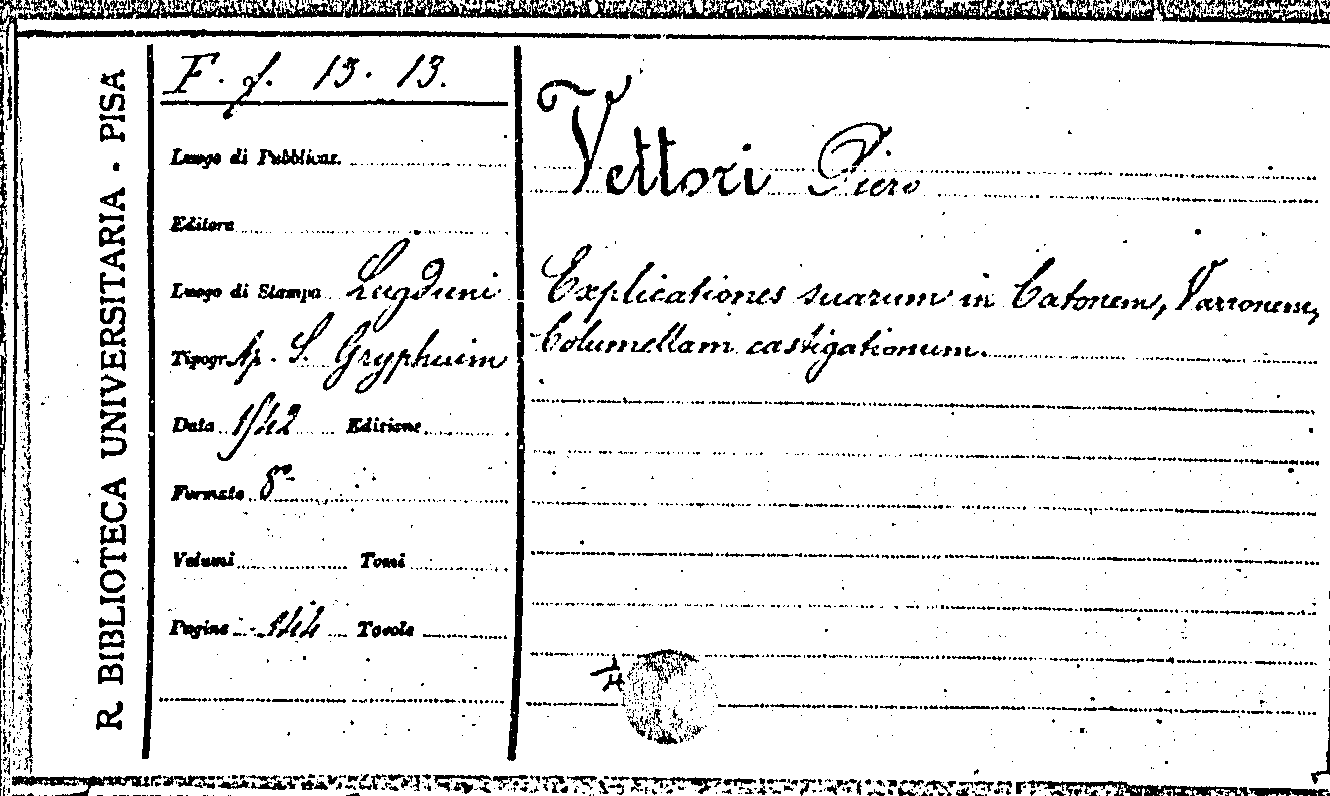 R. BIBLIOTECA UNIVERSITARIA - PISA
F. f. 13. 13.
Luogo di Pubblicaz.
Editore
Luogo di Stampa Lugduni
Tipogr. Ap. S. Gryphium
Data 1542 Edizione
Formato 8°
Volumi Tomi
Pagine 144 Tavole
Vettori Piero
Explicationes suarum in Catonem, Varronem,
Columellam castigationum.